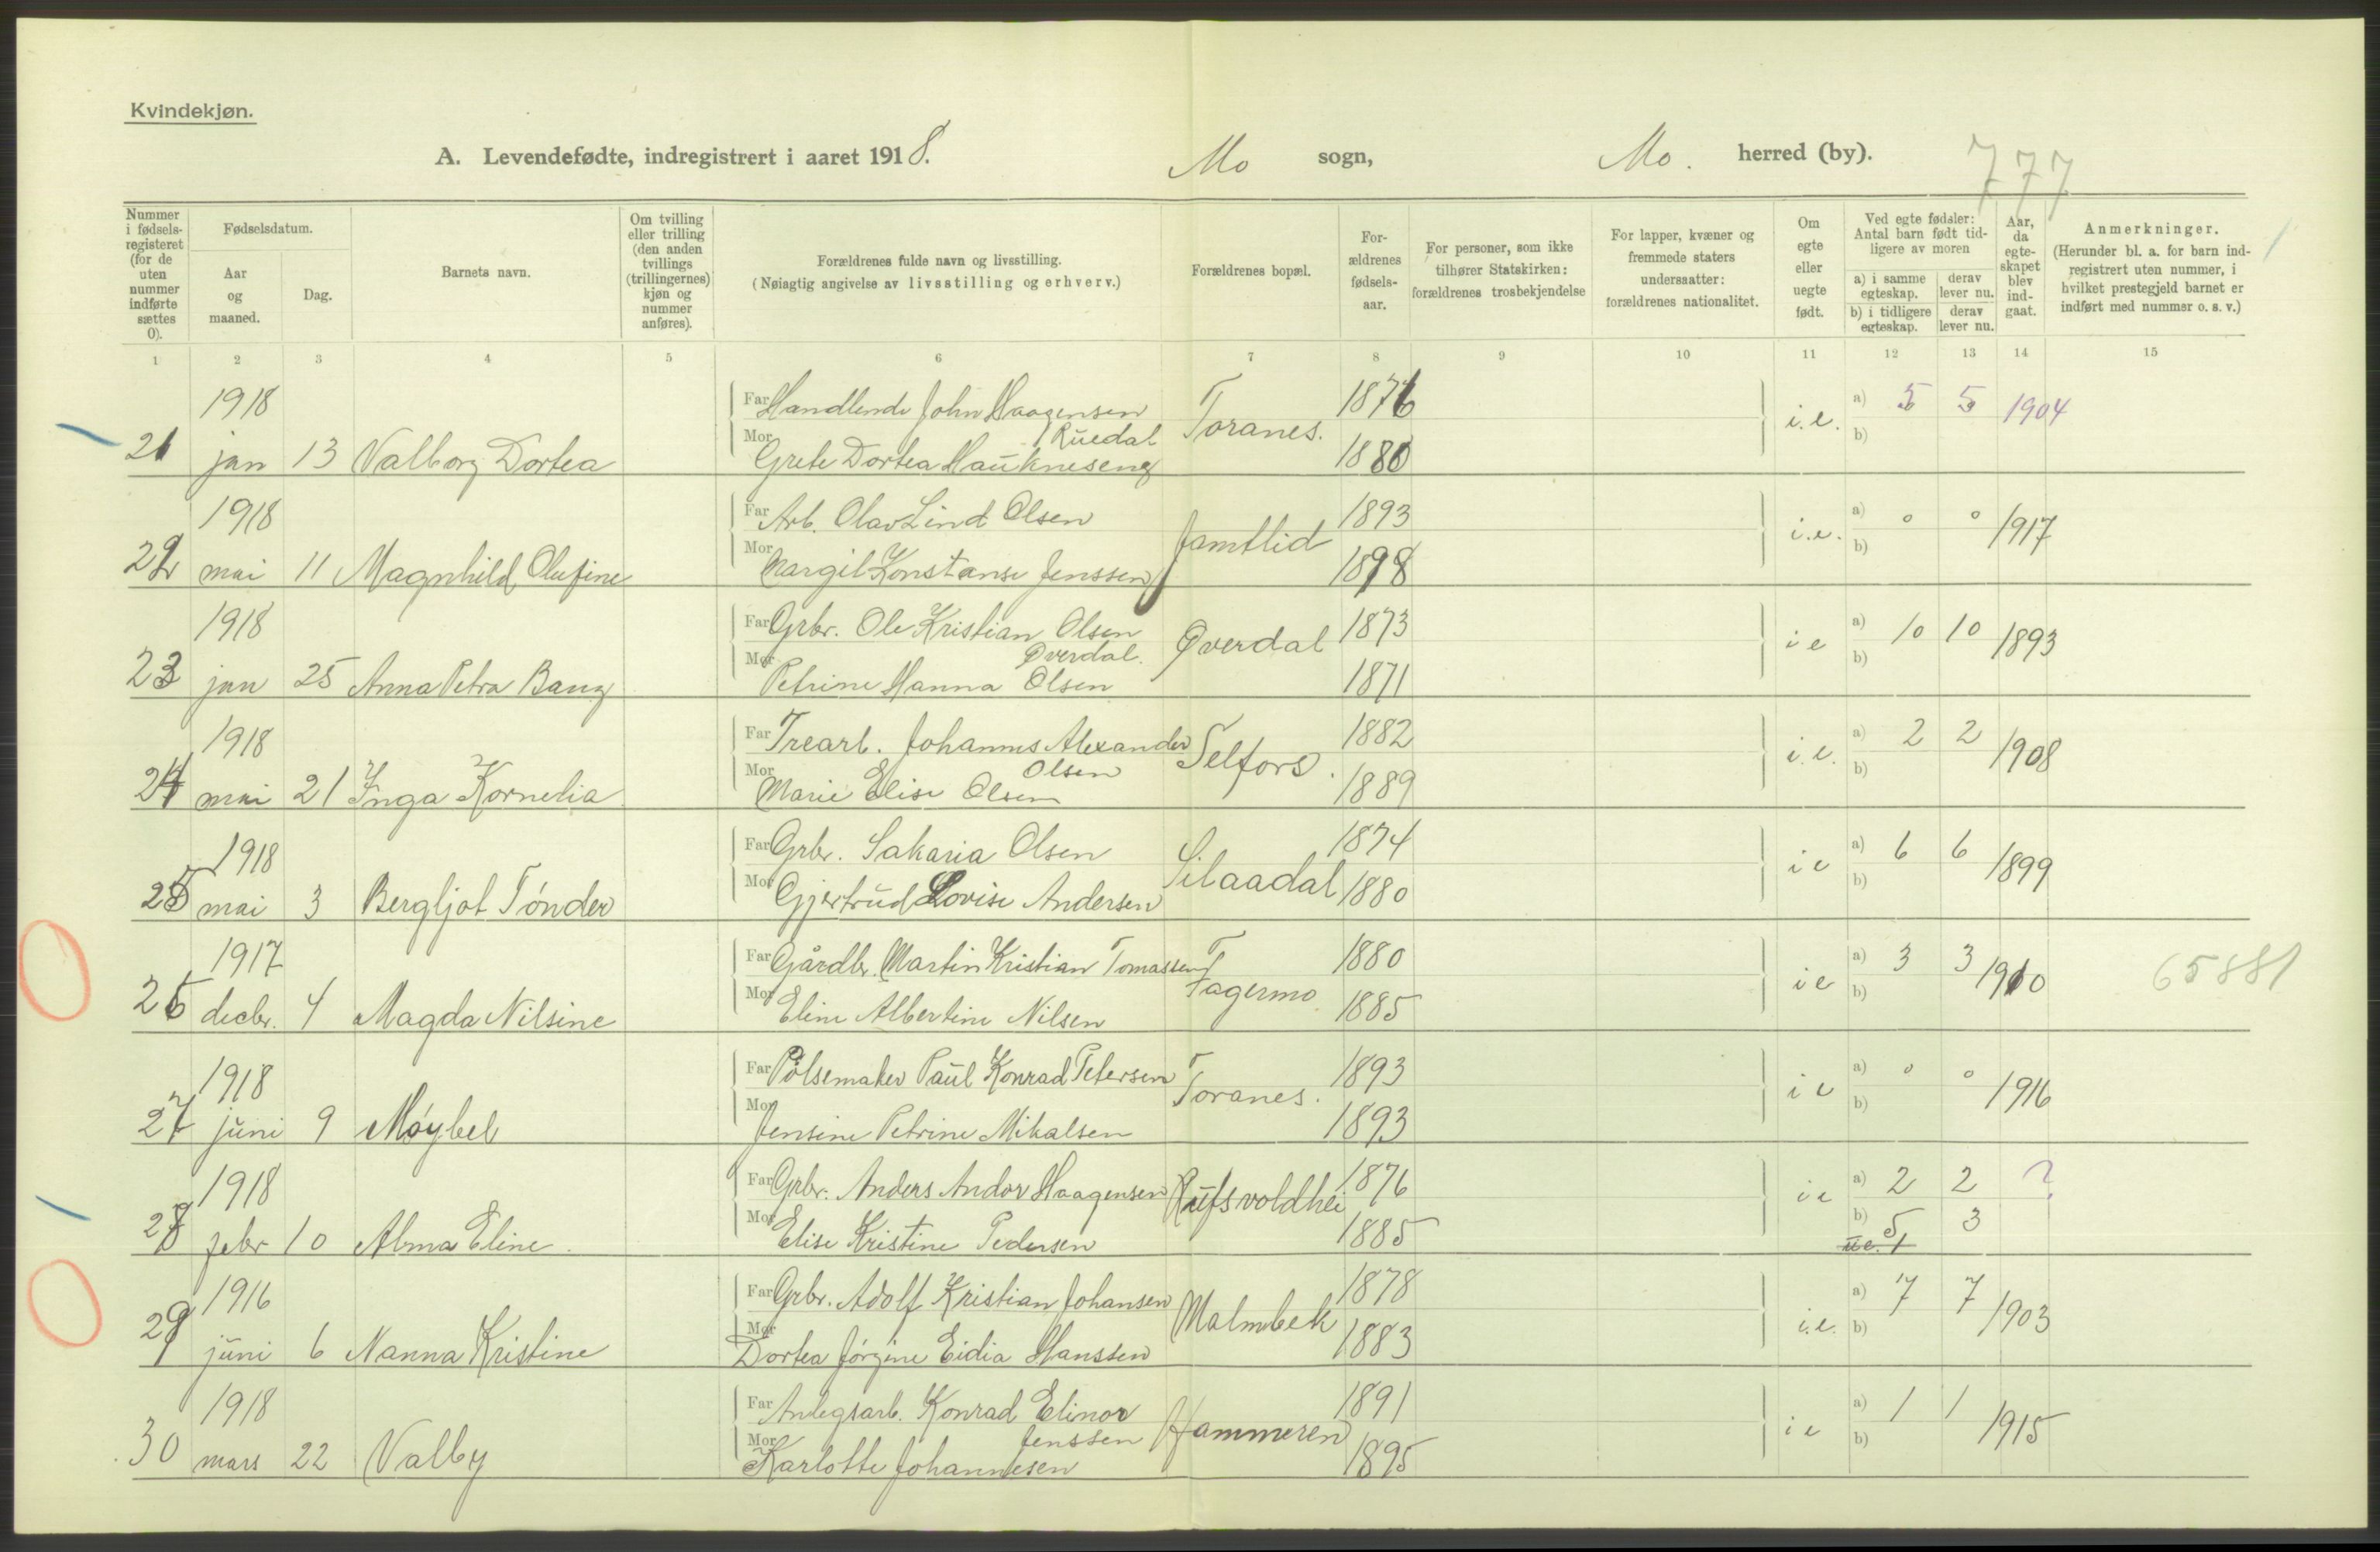 Kvindekjøn.
A. Levendefødte, indregistrert i aaret 1918. Mo sogn, Mo. herred (by). 777
Nummer i fødsels-registeret (for de uten nummer indførte sættes 0).
Fødselsdatum.
Aar og maaned.
Dag.
Barnets navn.
Om tvilling eller trilling (den anden tvillings (trillingernes) kjøn og nummer anføres).
Forældrenes fulde navn og livsstilling.
(Nøiagtig angivelse av livsstilling og erhverv.)
Forældrenes bopæl.
For-ældrenes fødsels-aar.
For personer, som ikke tilhører Statskirken: forældrenes trosbekjendelse
For lapper, kvæner og fremmede staters undersaatter: forældrenes nationalitet.
Om egte eller uegte født.
Ved egte fødsler: Antal barn født tid-ligere av moren
a) i samme egteskap. derav lever nu.
b) i tidligere egteskap. derav lever nu.
Aar, da egte-skapet blev ind-gaat.
Anmerkninger.
(Herunder bl. a. for barn ind-registrert uten nummer, i hvilket prestegjeld barnet er indført med nummer o. s. v.)
1 2 3 4 5 6 7 8 9 10 11 12 13 14 15
1918 Far Handlende John Haagensen 1876 a) 5 5 1904
Ruedal Toranes. i.e. b)
21 jan 13 Valborg Dortea Mor Grete Dortea Haukneseng 1880
1918 Far Arb. Olav Lind Olsen 1893 a) 0 0 1917
Jamtlid i.e. b)
22 mai 11 Magnhild Olufine Mor Margit Konstanse Jenssen 1898
1918 Far Grbr. Ole Kristian Olsen 1873 a) 10 10 1893
Øverdal. Øverdal i e b)
23 jan 25 Anna Petra Bang Mor Petrine Hanna Olsen 1871
1918 Far Trearb. Johannes Alexander 1882 a) 2 2 1908
Olsen Selfors. i.e. b)
24 mai 21 Inga Kornelia Mor Marie Elise Olsen 1889
1918 Far Grbr. Sakaria Olsen 1874 a) 6 6 1899
Silaadal i e b)
25 mai 3 Bergljot Tønder Mor Gjertrud Lovise Andersen 1880
1917 Far Gårdbr. Martin Kristian Tomassen 1880 a) 3 3 1910 65881
Fagermo i e b)
26 decbr. 4 Magda Nilsine Mor Eline Albertine Nilsen 1885
1918 Far Pølsemaker Paul Konrad Petersen 1893 a) 0 0 1916
Toranes. i e b)
27 juni 9 Møybel Mor Jensine Petrine Mikalsen 1893
1918 Far Grbr. Anders Andor Haagensen 1876 a) 2 2 ?
i e b) 5 3
28 febr 10 Alma Eline Mor Elise Kristine Pedersen 1885 u e. 1
1916 Far Grbr. Adolf Kristian Johansen 1878 a) 7 7 1903
Malmbek i.e. b)
29 juni 6 Nanna Kristine Mor Dortea Jørgine Eidia Hanssen 1883
1918 Far Anlegsarb. Konrad Elinor 1891 a) 1 1 1915
Jenssen Hammeren i e b)
30 mars 22 Valby Mor Karlotte Johannesen 1895